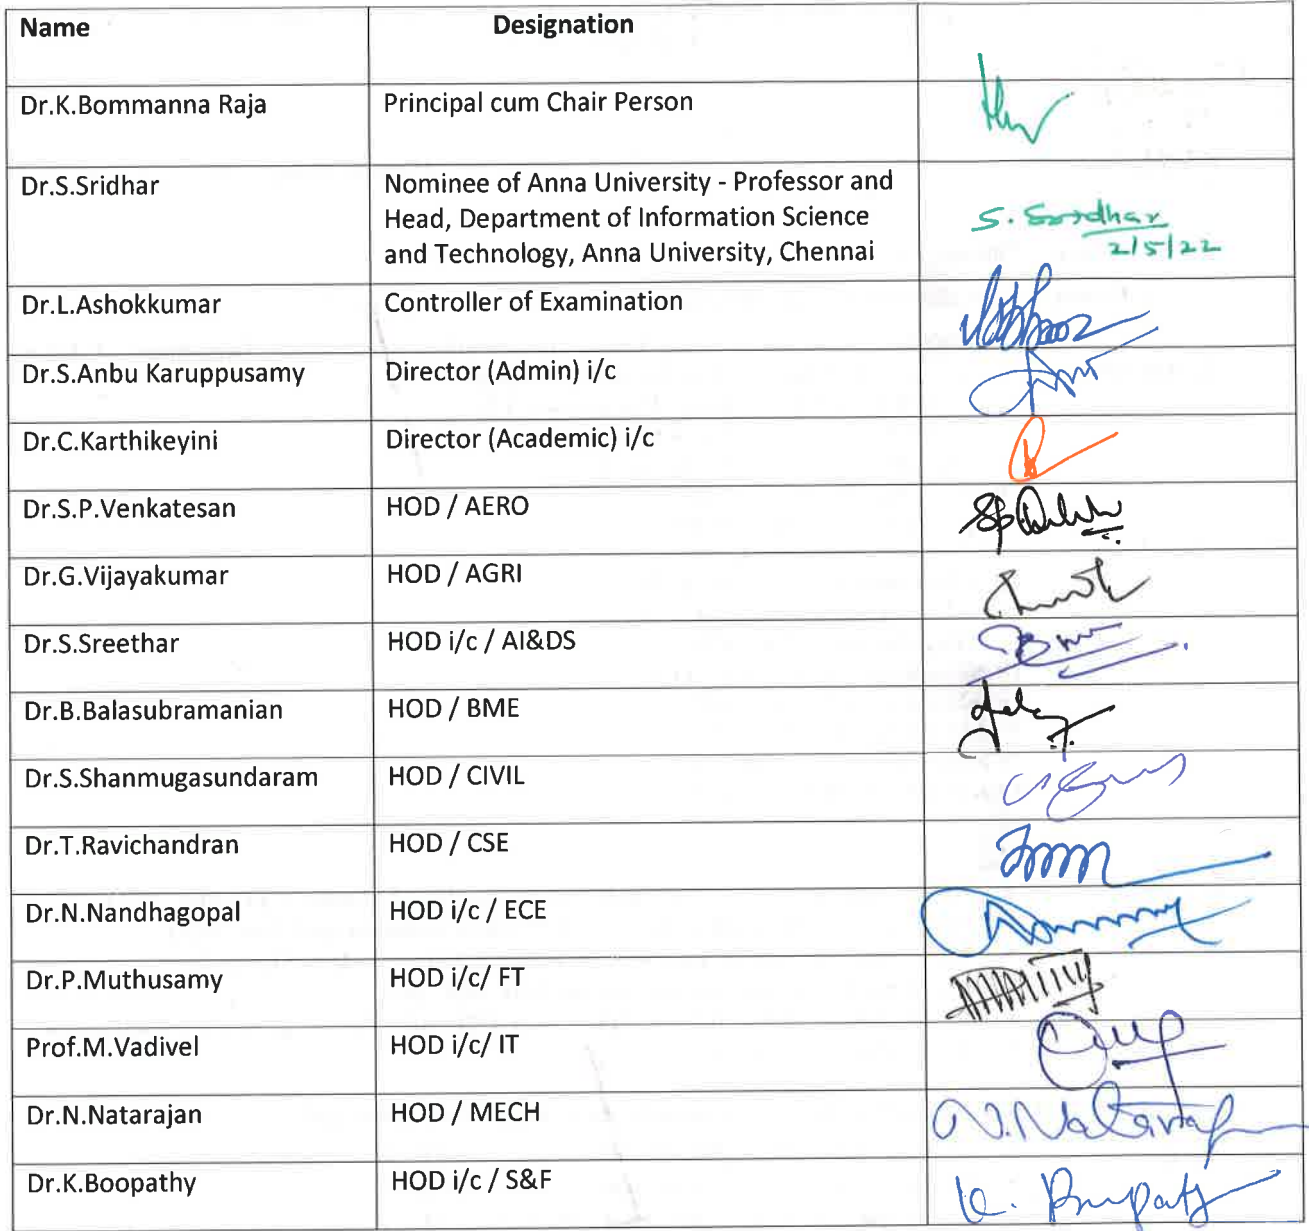 Name Designation
Dr.K.Bommanna Raja Principal cum Chair Person
Dr.S.Sridhar Nominee of Anna University - Professor and
Head, Department of Information Science
and Technology, Anna University, Chennai
S. Sridhar
2/5/22
Dr.L.Ashokkumar Controller of Examination
Dr.S.Anbu Karuppusamy Director (Admin) i/c
Dr.C.Karthikeyini Director (Academic) i/c
Dr.S.P.Venkatesan HOD / AERO
Dr.G.Vijayakumar HOD / AGRI
Dr.S.Sreethar HOD i/c / AI&DS
Dr.B.Balasubramanian HOD / BME
Dr.S.Shanmugasundaram HOD / CIVIL
Dr.T.Ravichandran HOD / CSE
Dr.N.Nandhagopal HOD i/c / ECE
Dr.P.Muthusamy HOD i/c/ FT
Prof.M.Vadivel HOD i/c/ IT
Dr.N.Natarajan HOD / MECH N.Natarajan
Dr.K.Boopathy HOD i/c / S&F